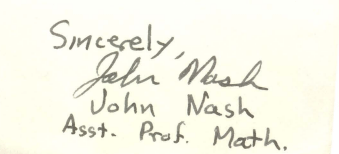 Sincerely,
John Nash
John Nash
Asst. Prof. Math.